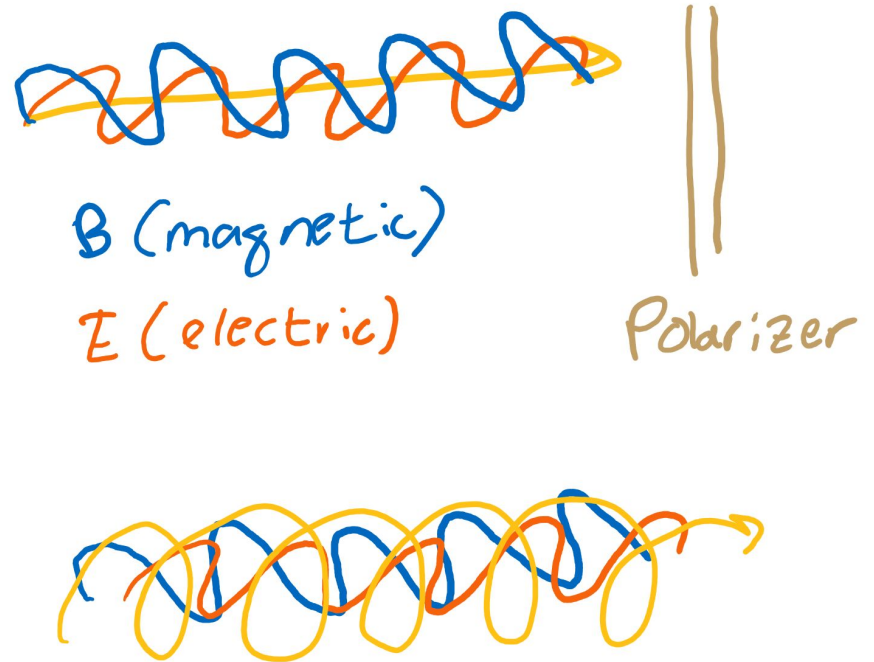 B (magnetic)
E (electric)
Polarizer